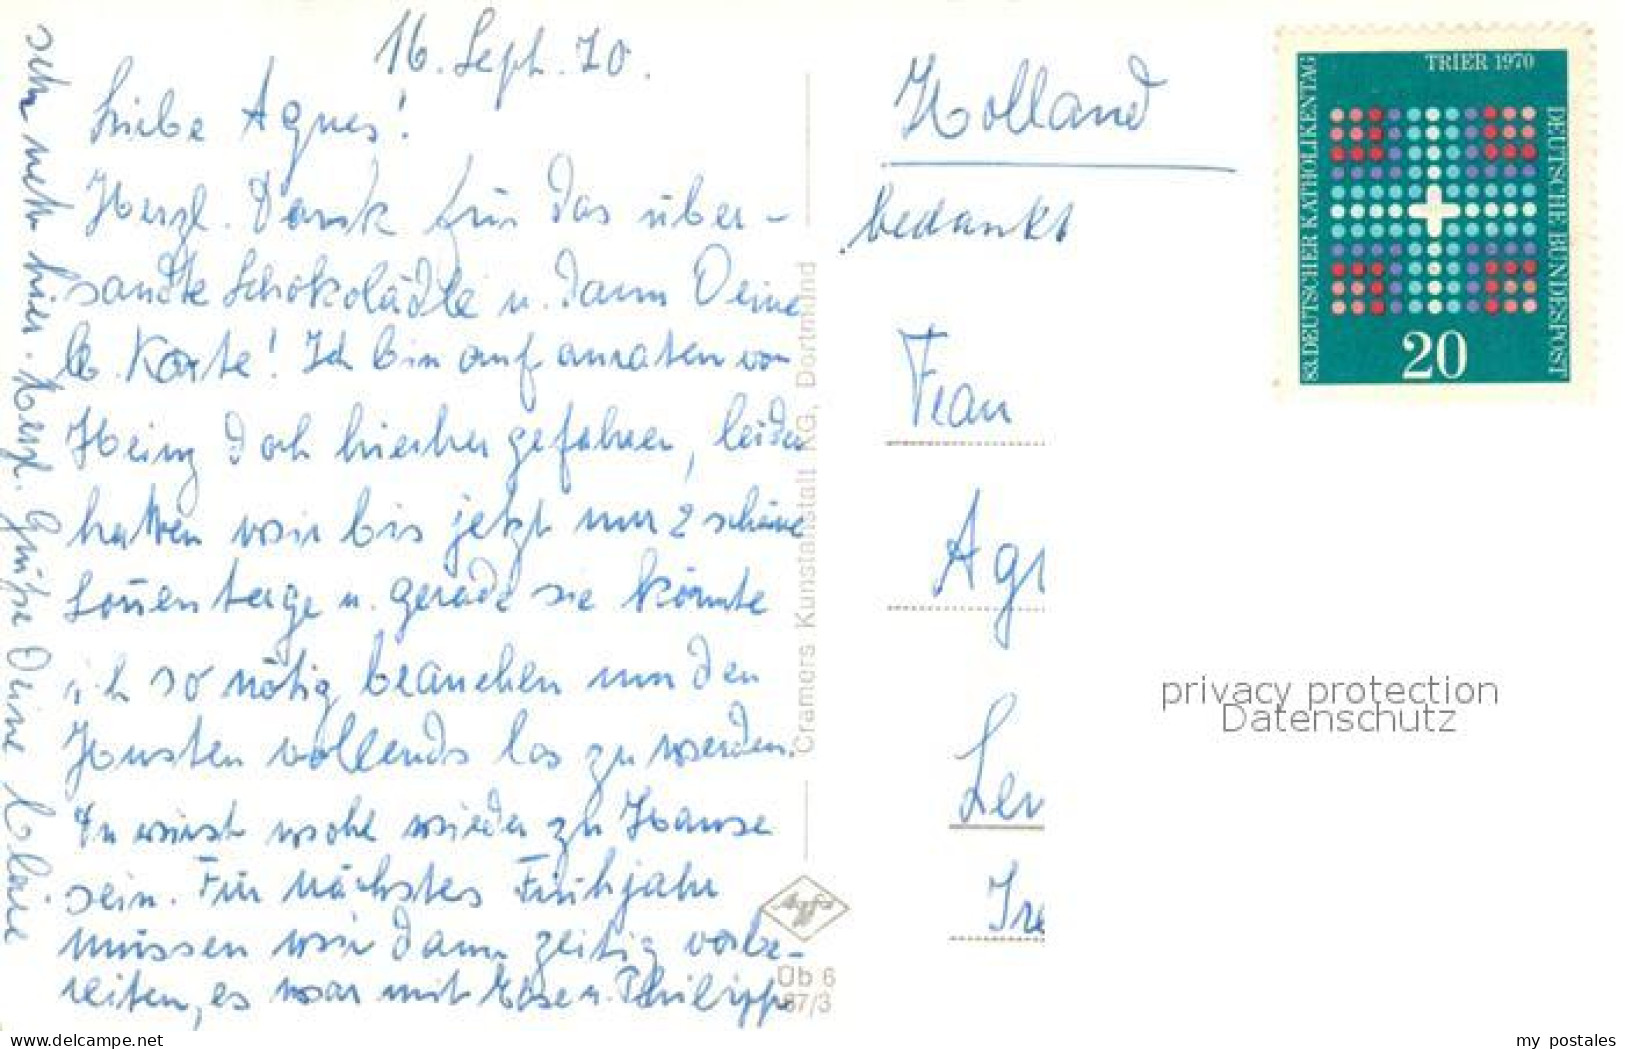 16. Sept. 70.
Liebe Agnes!
Herzl. Dank für das über-
sandte Schokolädle u. dann Deine
lb. Karte! Ich bin auf anraten von
Heinz doch hierher gefahren, leider
hatten wir bis jetzt nur 2 schöne
Soñentage u. gerade sie könnte
ich so nötig brauchen um den
Husten vollends los zu werden.
Du wirst wohl wieder zu Hause
sein. Für nächstes Frühjahr
müssen wir dann zeitig vorbe-
reiten, es war mit Rose u. Philipp
sehr nett hier. Herzl. Grüße Deine Claire
Cramers Kunstanstalt KG, Dortmund
Ob 6
87/3
Holland
bedankt
Frau
Agn
Lev
Tre
TRIER 1970
83. DEUTSCHER KATHOLIKENTAG
DEUTSCHE BUNDESPOST
20
privacy protection
Datenschutz
www.delcampe.net
my_postales